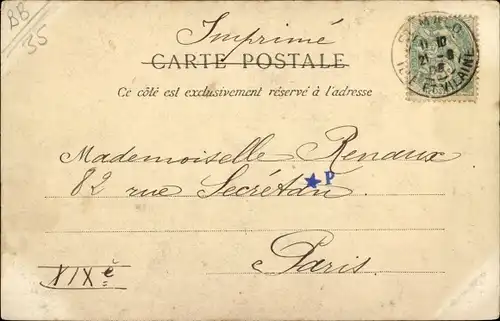 BB
35
Imprimé
CARTE POSTALE
Ce côté est exclusivement réservé à l'adresse
Mademoiselle Renaux
82 rue Secrétan
★P
Paris.
XIXè
ST MALO
ILLE-ET-VILAINE